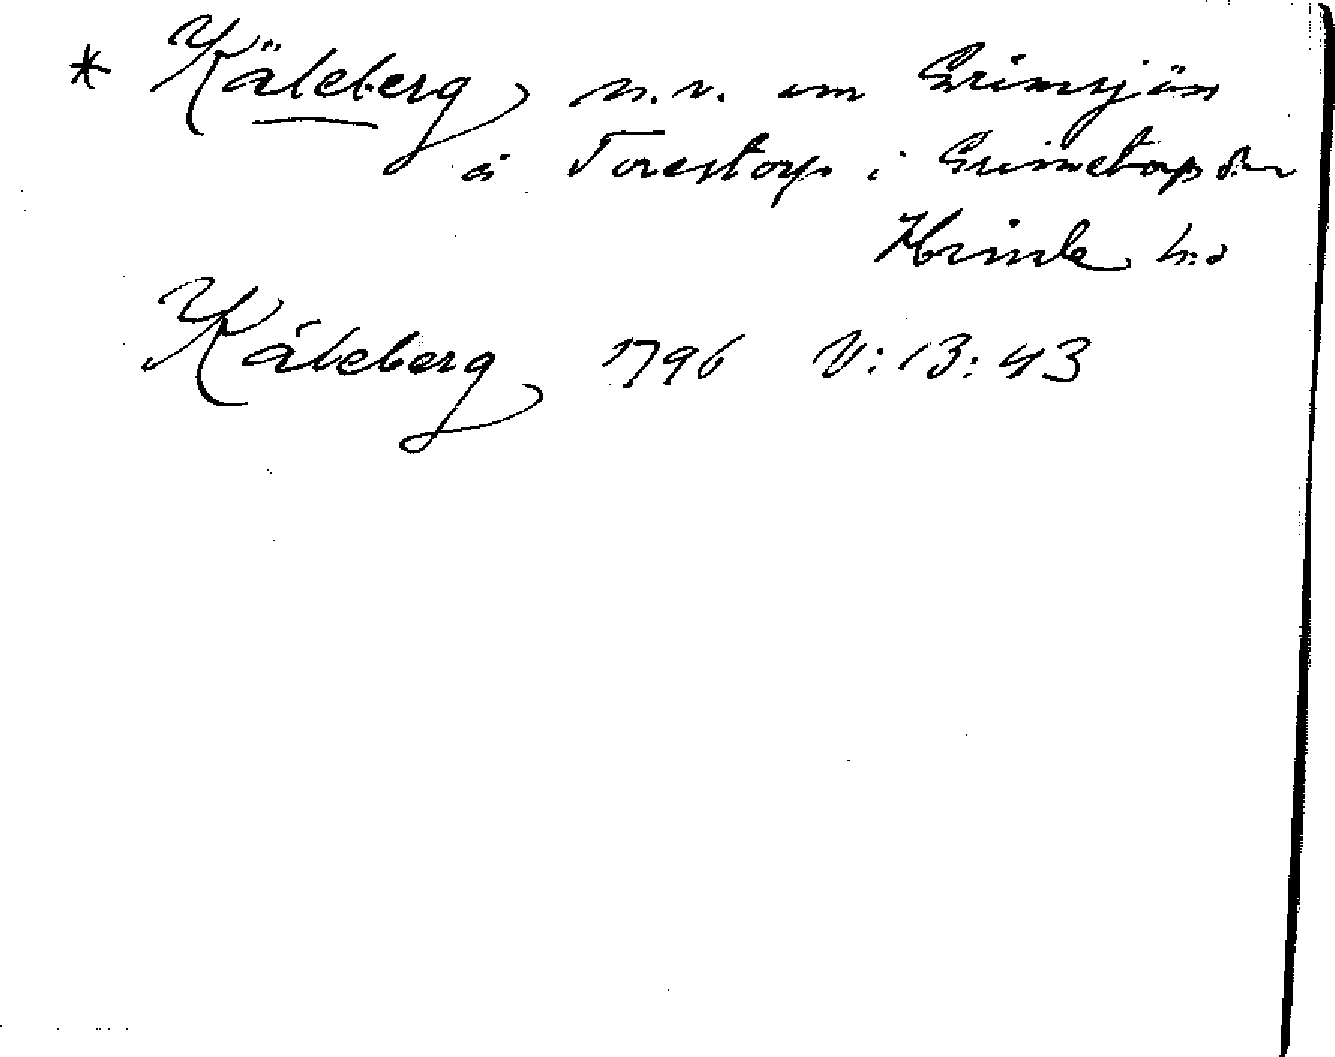 * Käleberg n.v. om Grimsjön
å Torestorp i Grimetorp s:n
Kinds h:d
Kåleberg 1796 V:13:43